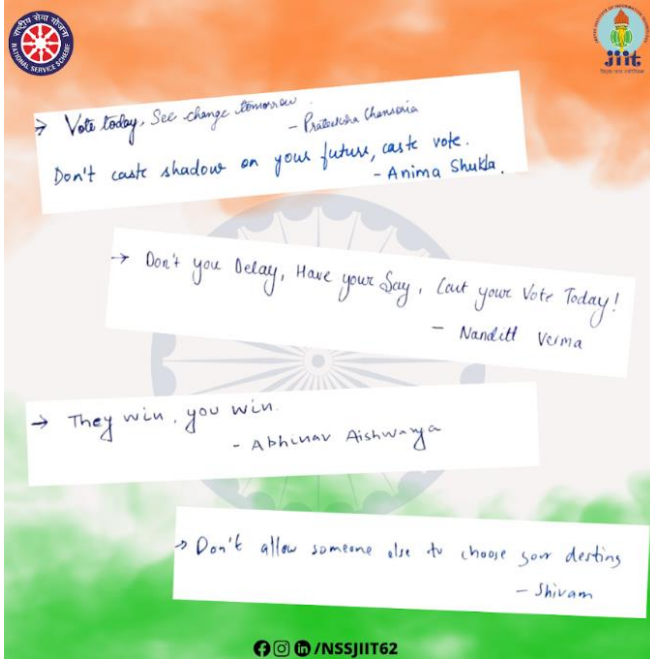 राष्ट्रीय सेवा योजना
NATIONAL SERVICE SCHEME
jiit
→ Vote today, See change tomorrow.
- Prateeksha
Don't caste shadow on your future, caste vote.
- Anima Shukla.
→ Don't you Delay, Have your Say, Cast your Vote Today!
- Nanditt Verma
→ They win, you win.
- Abhinav Aishwarya
→ Don't allow someone else to choose your destiny
- Shivam
/NSSJIIT62